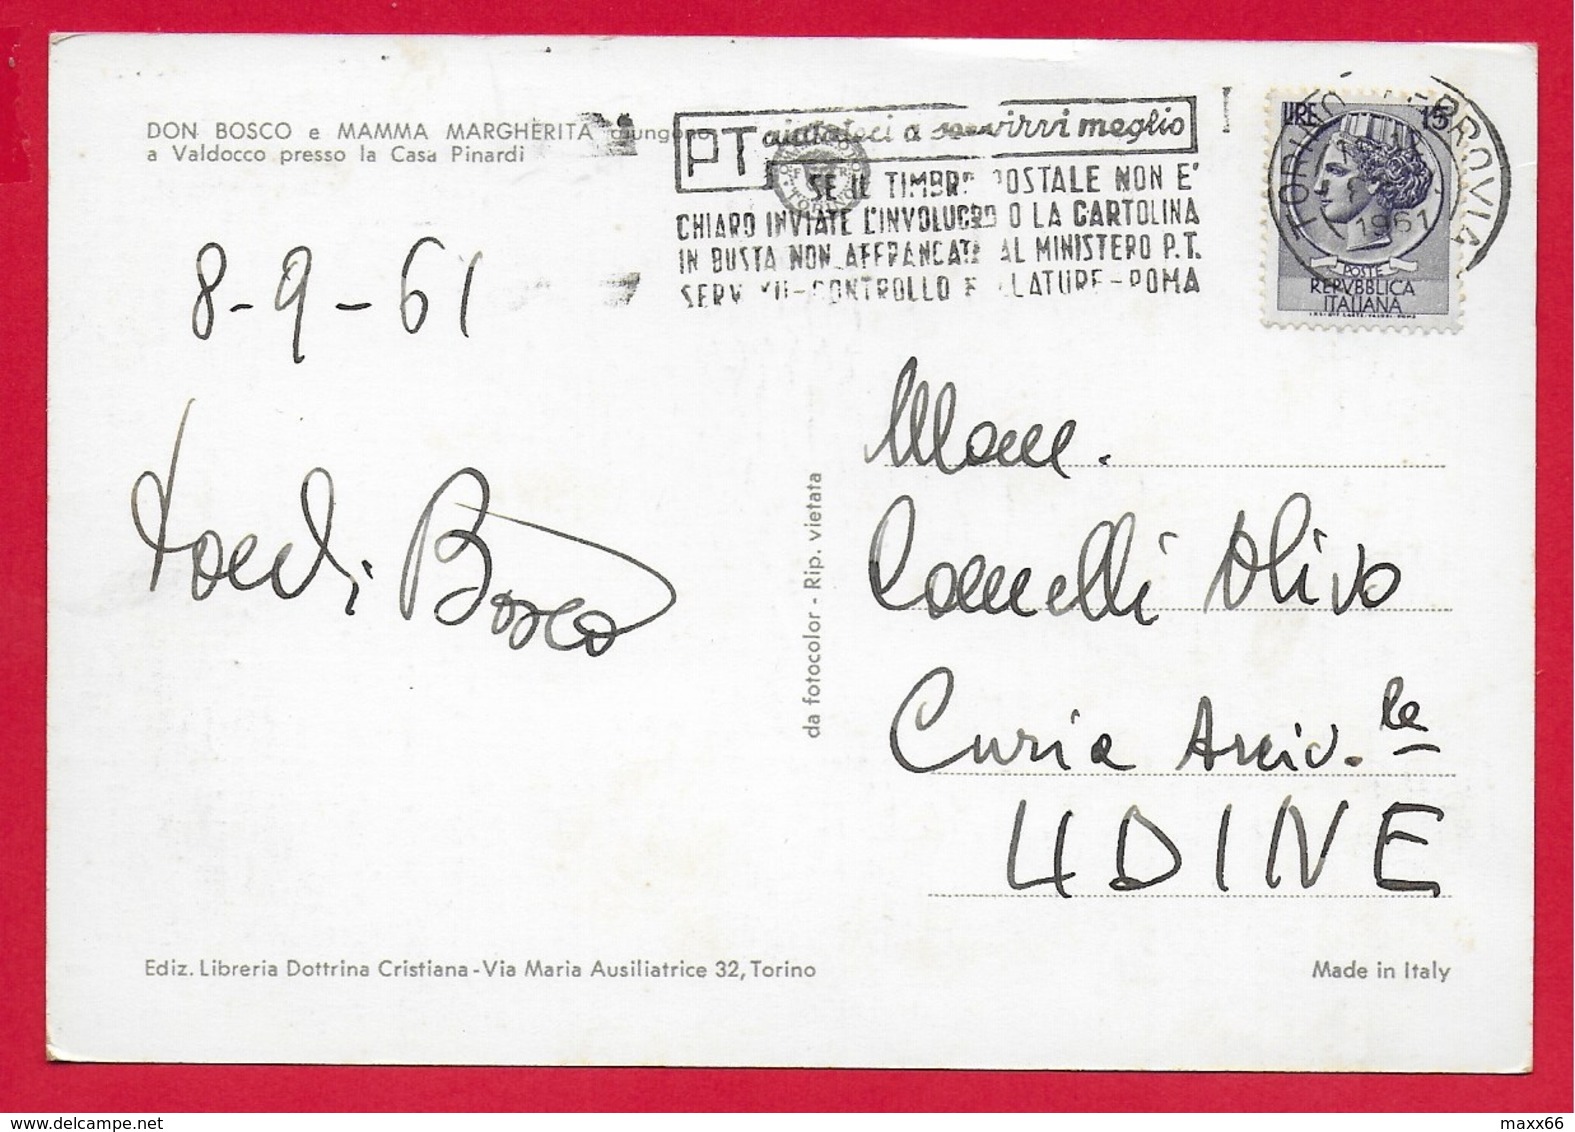 DON BOSCO e MAMMA MARGHERITA giungono
a Valdocco presso la Casa Pinardi
PT aiutateci a servirvi meglio
SE IL TIMBRO POSTALE NON E'
CHIARO INVIATE L'INVOLUCRO O LA CARTOLINA
IN BUSTA NON AFFRANCATA AL MINISTERO P.T.
SERV. XII - CONTROLLO BOLLATURE - ROMA
LIRE 15
POSTE
REPVBBLICA
ITALIANA
TORINO FERROVIA
1961
8-9-61
Bosco
da fotocolor - Rip. vietata
Olivo
Curia Arciv.le
UDINE
Ediz. Libreria Dottrina Cristiana - Via Maria Ausiliatrice 32, Torino
Made in Italy
maxx66
www.delcampe.net